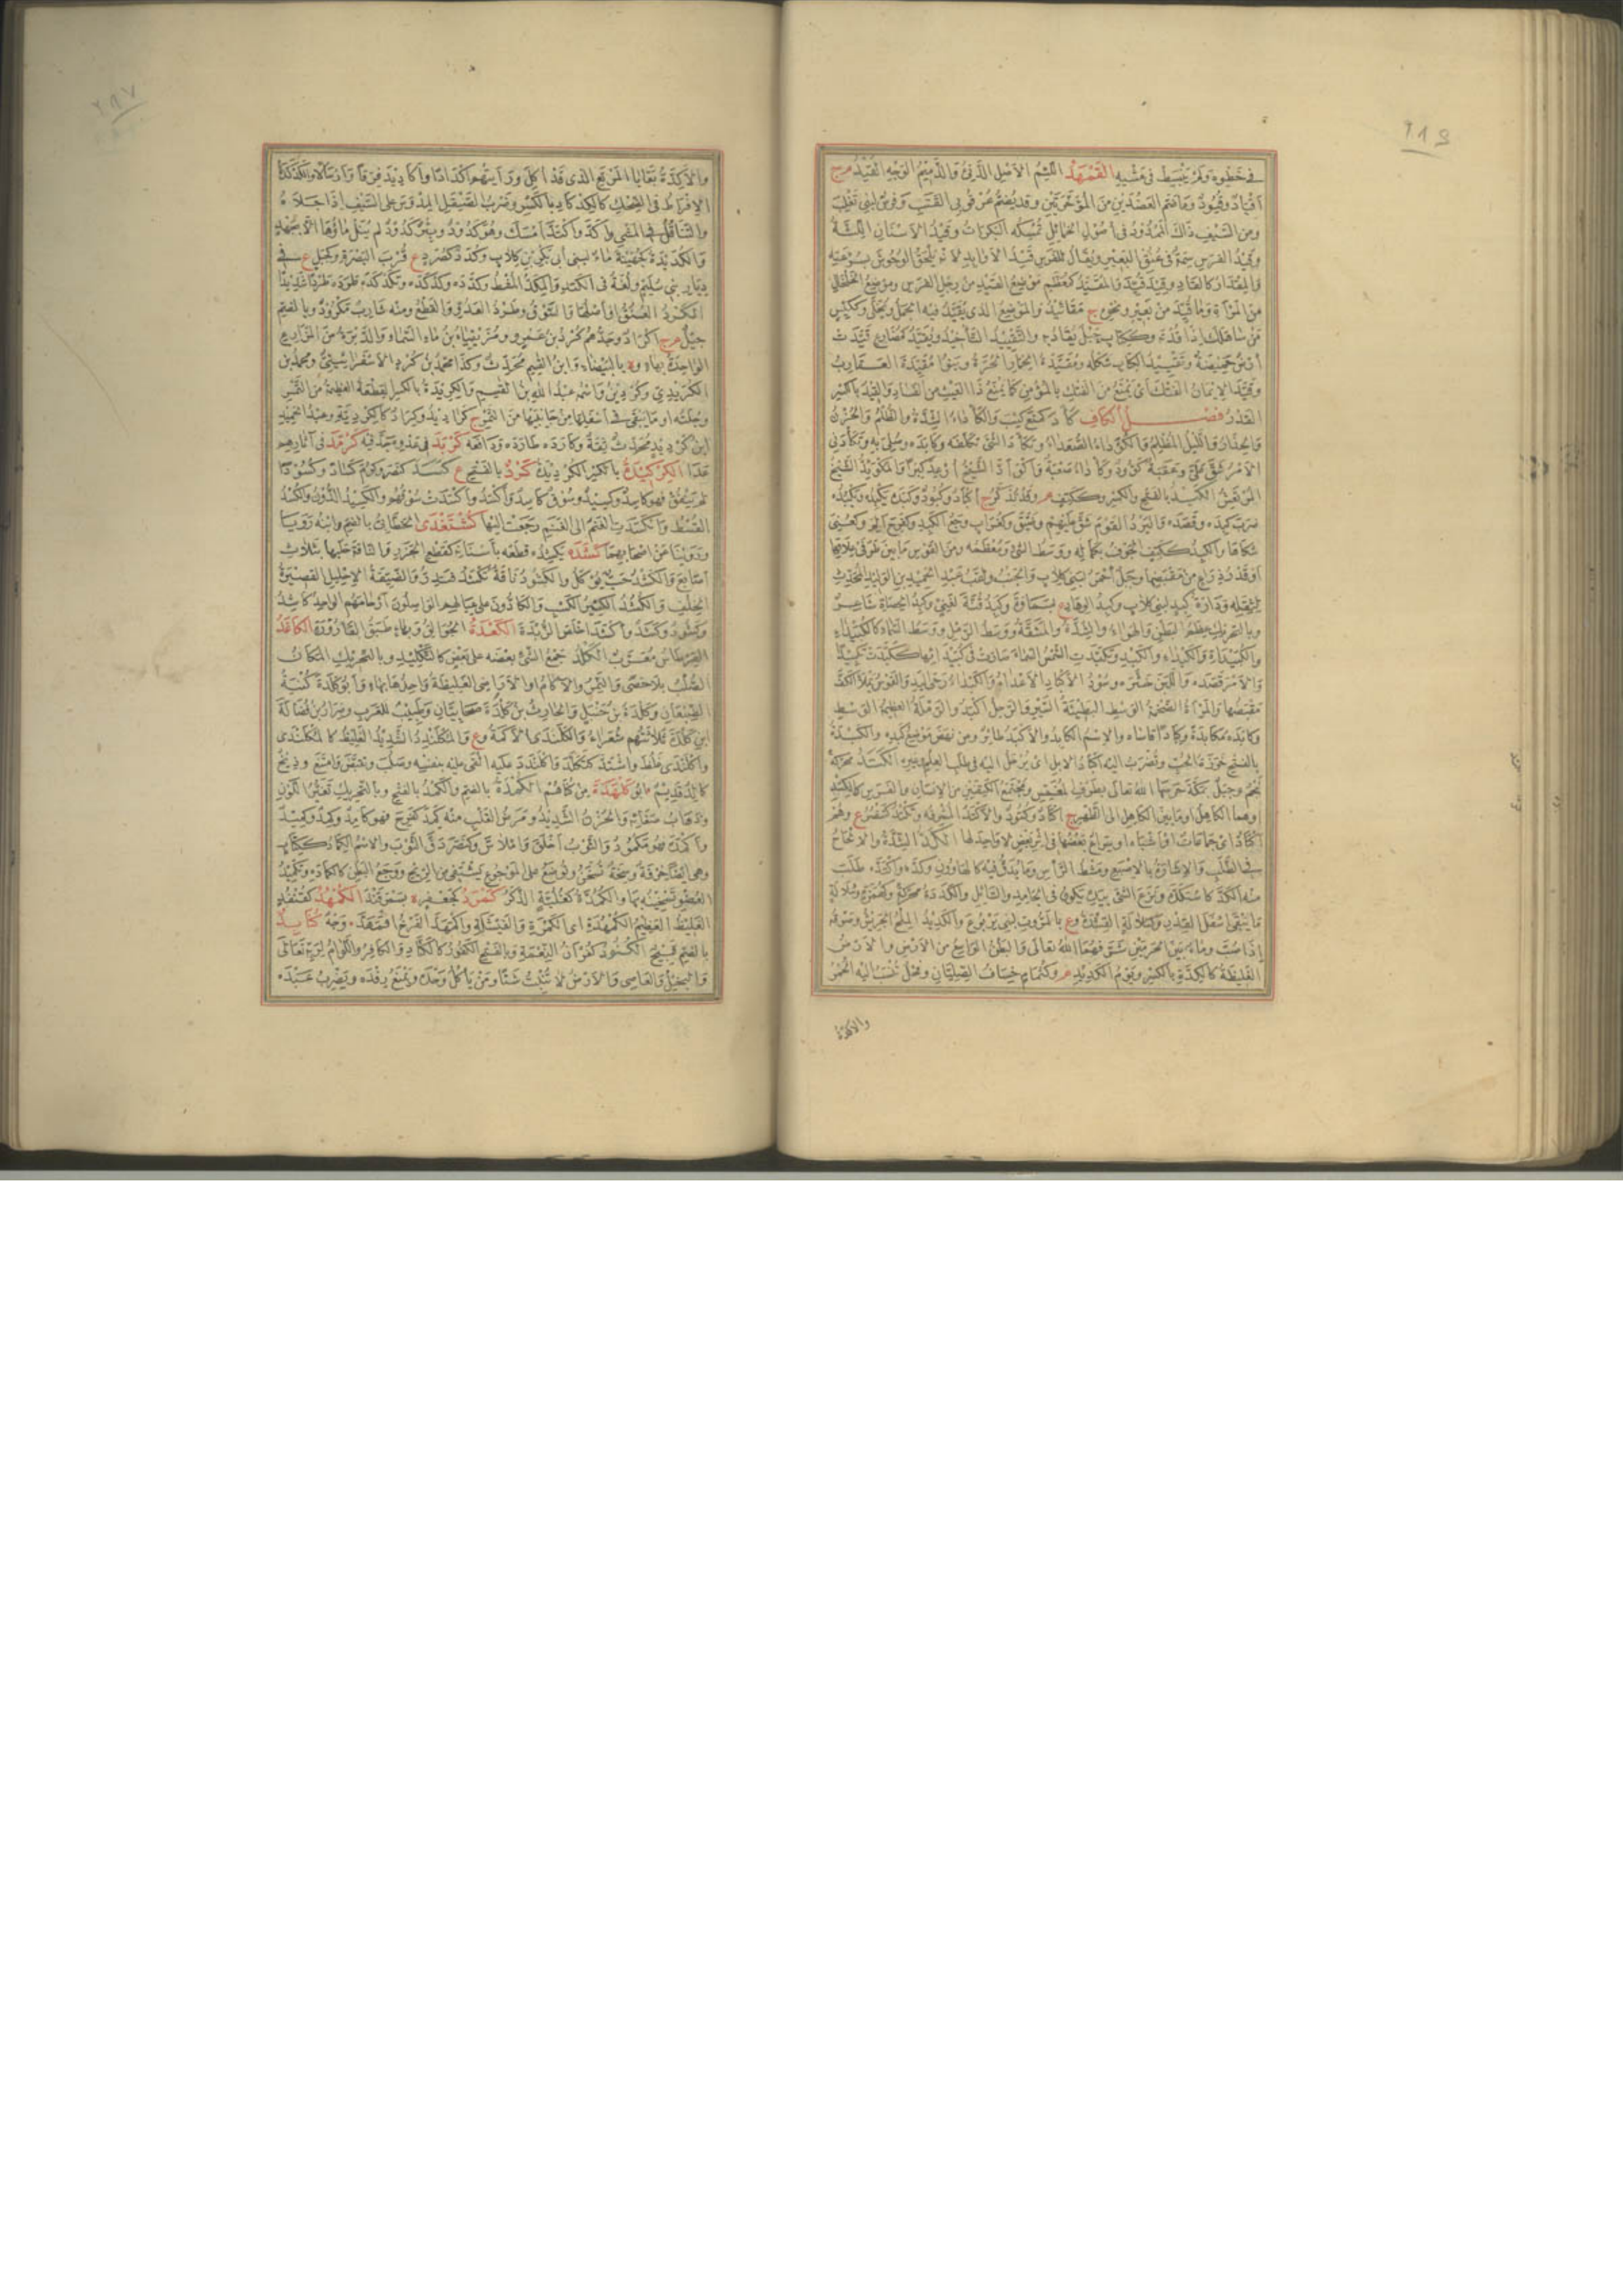 في خطوه ولم ينبسط في مشيه القمهد اللئيم الاصل الدنئ والذميم الوجه القيد م ج
اقياد وقيود وما ضم العضدين من المؤخرتين وقد يضم عرقوبى القتب وفرس لبنى تغلب
ومن السيف ذلك الممدود في اصول الحمائل تمسكه البكرات وقيد الاسنان اللثة
وقيد الفرس سمة في عنق البعير ويقال للفرس قيد الاوابد لانه يلحق الوحوش بسرعته
والمقدار كالقاد وقيد قيده والمقيد كمعظم موضع القيد من رجل الفرس وموضع الخلخال
من المرأة وما قيد من بعير ونحوه ج مقاييد والموضع الذى يقيد فيه الجمل ويخلى وككيس
من ساهلك اذا قدته وككتاب حبل يقاد به والتقييد التأخيذ وتقيد كمضارع قيدت
ارض حميضة وتقييد الكتاب شكله ومقيدة الحمار الحرة وبنو مقيدة العقارب
وقيد الايمان الفتك اى يمنع من الفتك بالمؤمن كما يمنع ذا العيث من الفساد والقيد بالكسر
القدر فصل الكاف كأد كمنع كئب والكأداء الشدة والظلم والحزن
والحذار والليل المظلم والكؤداء الصعداء وتكأد الشئ تكلفه وكابده وصلى به وتكأدنى
الامر شق على وعقبة كؤد وكأداء صعبة واكوأد الشيخ ارعد كبرا والمكوئد الشيخ
المرتعش الكبد بالفتح والكسر وككتف م وقد تذكر ج اكباد وكبود وكبده يكبده ويكبده
ضرب كبده وقصده والبرد القوم شق عليهم وضيق وكغراب وجع الكبد وكفرح الم وكعنى
شكاها والكبد ككتف الجوف بكماله ووسط الشئ ومعظمه ومن القوس ما بين طرفى علاقتها
او قدر ذراع من مقبضها وجبل احمر لبنى كلاب والجنب ولقب عبد الحميد بن الوليد المحدث
لثقله ودارة كبد لبنى كلاب وكبد الوهاد ع بسماوة وكبد قنة لغنى وكبد الحصاة شاعر
وبالتحريك عظم البطن والهواء والشدة والمشقة ووسط الرمل ووسط السماء كالكبيداء
والكبيداة والكبداء والكبد وتكبدت الشمس السماء صارت في كبيدائها ككبدت تكبيدا
والامر قصده واللبن خثر وسود الاكباد الاعداء والكبداء رحى اليد والقوس يملأ الكف
مقبضها والمرأة الضخمة الوسط البطيئة السير والرجل اكبد والرملة العظيمة الوسط
وكابده مكابدة وكبادا قاساه والاسم الكابد والاكبد طائر ومن نهض موضع كبده والكبدة
بالفتح خرزة الحب وتضرب اليه اكباد الابل اى يرحل اليه في طلب العلم وغيره الكتد محركة
نجم وجبل بمكة حرسها الله تعالى بطرف المغمس ومجتمع الكتفين من الانسان والفرس كالكتد
او هما الكاهل او ما بين الكاهل الى الظهر ج اكتاد وكتود والاكتد المشرفه وتكتد كتنصر ع وهم
اكتاد اى جماعات او اشباه او سراع بعضها في اثر بعض لا واحد لها الكد الشدة والالحاح
في الطلب والاشارة بالاصبع ومشط الرأس وما يدق فيه كالهاون وكده واكتده طلب
منه الكد كاستكد ونزع الشئ بيده يكون في الجامد والسائل والكددة محركة وكهمزة وسلالة
ما يبقى اسفل القدر وككلالة القشدة و ع بالمروت لبنى يربوع والكديد الملح الجريش وصوته
اذا صب وماء بين الحرمين شرفهما الله تعالى والبطن الواسع من الارض والارض
الغليظة كالكدة بالكسر ويوم الكديد م وكثمام خصاف القبطيان وفحل تنسب اليه الحمر
والاكدة
والاكدة بقايا المرتع الذى قد اكل ورأيتهم اكدادا واكاديد فرقا وارسالا والكدكدة
الافراط في الضحك كالكدكاد بالكسر وضرب الصيقل المدوس على السيف اذا جلاه
والتثاقل في المشي واكد واكتد امسك وهو كدود وبئر كدود لم ينل ماؤها الا بجهد
والكديدة كجهينة ماء لبنى ابى بكر بن كلاب وكدد كصرد ع قرب البصرة وكجبل ع في
ديار بنى سليم ولغة في الكتد والمكد المشط وكدده وكدكده وتكدكده طرده طردا شديدا
الكرد العنق او اصلها والسوق وطرد العدو والقطع ومنه شارب مكرود وبالضم
جيل م ج اكراد وجدهم كرد بن عمرو مزيقياء بن ماء السماء والدبرة من المزارع
الواحدة بهاء و ة بالبيضاء وابن القاسم محدث وكذا محمد بن كرد الاسفراينى ومحمد بن
الكريدى وكردين واسمه عبد الله بن القاسم والكرديدة بالكسر القطعة العظيمة من التمر
وجلته او ما يبقى في اسفلها من جانبيها من التمر ج كراديد وكراد كالكرديدة وعبد الحميد
ابن كرديد محدث ثقة وكارده طارده ودافعه كربد في عدوه جد فيه كرمد في آثارهم
عدا الكركيدة بالكسر الكرديدة كزد بالفتح ع كسد كنصر وكرم كسادا وكسودا
لم ينفق فهو كاسد وكسيد وسوق كاسد واكسد واكسدت سوقهم والكسيد الدون والكسد
القسط وانكسدت الغنم الى الغنم رجعت اليها كشتغدى الخطائى بالضم وابنه رويا
وروينا عن اصحابهما كشده يكشده قطعه باسنانه كقطع الجزر والناقة حلبها بثلاث
اصابع والكشد حب يؤكل والكشود ناقة تكشد فتدر والضيقة الاحليل القصيرة
الخلف والكشد الكثير الكسب والكادون على عيالهم الواصلون ارحامهم الواحد كاشد
وكشود وكشد واكشد اخلص الزبدة الكعدة الجوالق وبهاء طبق القارورة الكاغد
القرطاس معرب الكلد جمع الشئ بعضه على بعض كالتكليد وبالتحريك المكان
الصلب بلا حصى والنمر والاكام او الاراضى الغليظة واحدها بهاء وابو كلدة كنية
الضبعان وكلدة بن حنبل والحارث بن كلدة صحابيان وطبيب للعرب وضرار بن فضالة
ابن كلدة ثلاثتهم شعراء والكلندى الاكمة و ع والمكلندد الشديد الغليظ كالمكلندى
واكلندى غلظ واشتد كتكلد واكلندد عليه القى عليه بنفسه وصلب وتقبض وامتنع وذيخ
كالد قديم ابو كلهدة من كناهم الكمدة بالضم والكمد بالفتح وبالتحريك تغير اللون
وذهاب صفائه والحزن الشديد ومرض القلب منه كمد كفرح فهو كامد وكمد وكميد
واكمده فهو مكمود والثوب اخلق واملاس وكنصر دق الثوب والاسم الكماد ككتاب
وهى ايضا خرقة وسخة تسخن وتوضع على الموجوع يستشفى من الريح ووجع البطن كالكمادة وتكميد
العضو تسخينه بها والكمدة كعتلة الذكر كمرد كجعفر ة بسمرقند الكمهد كقنفذ
الغليظ العظيم الكمهدة اى الكمرة والفيشلة واكمهد الفرخ اقمهد وجه كنابد
بالضم قبيح الكنود كفران النعمة وبالفتح الكفور كالكناد والكافر واللوام لربه تعالى
والبخيل والعاصى والارض لا تنبت شيئا ومن يأكل وحده ويمنع رفده ويضرب عبده